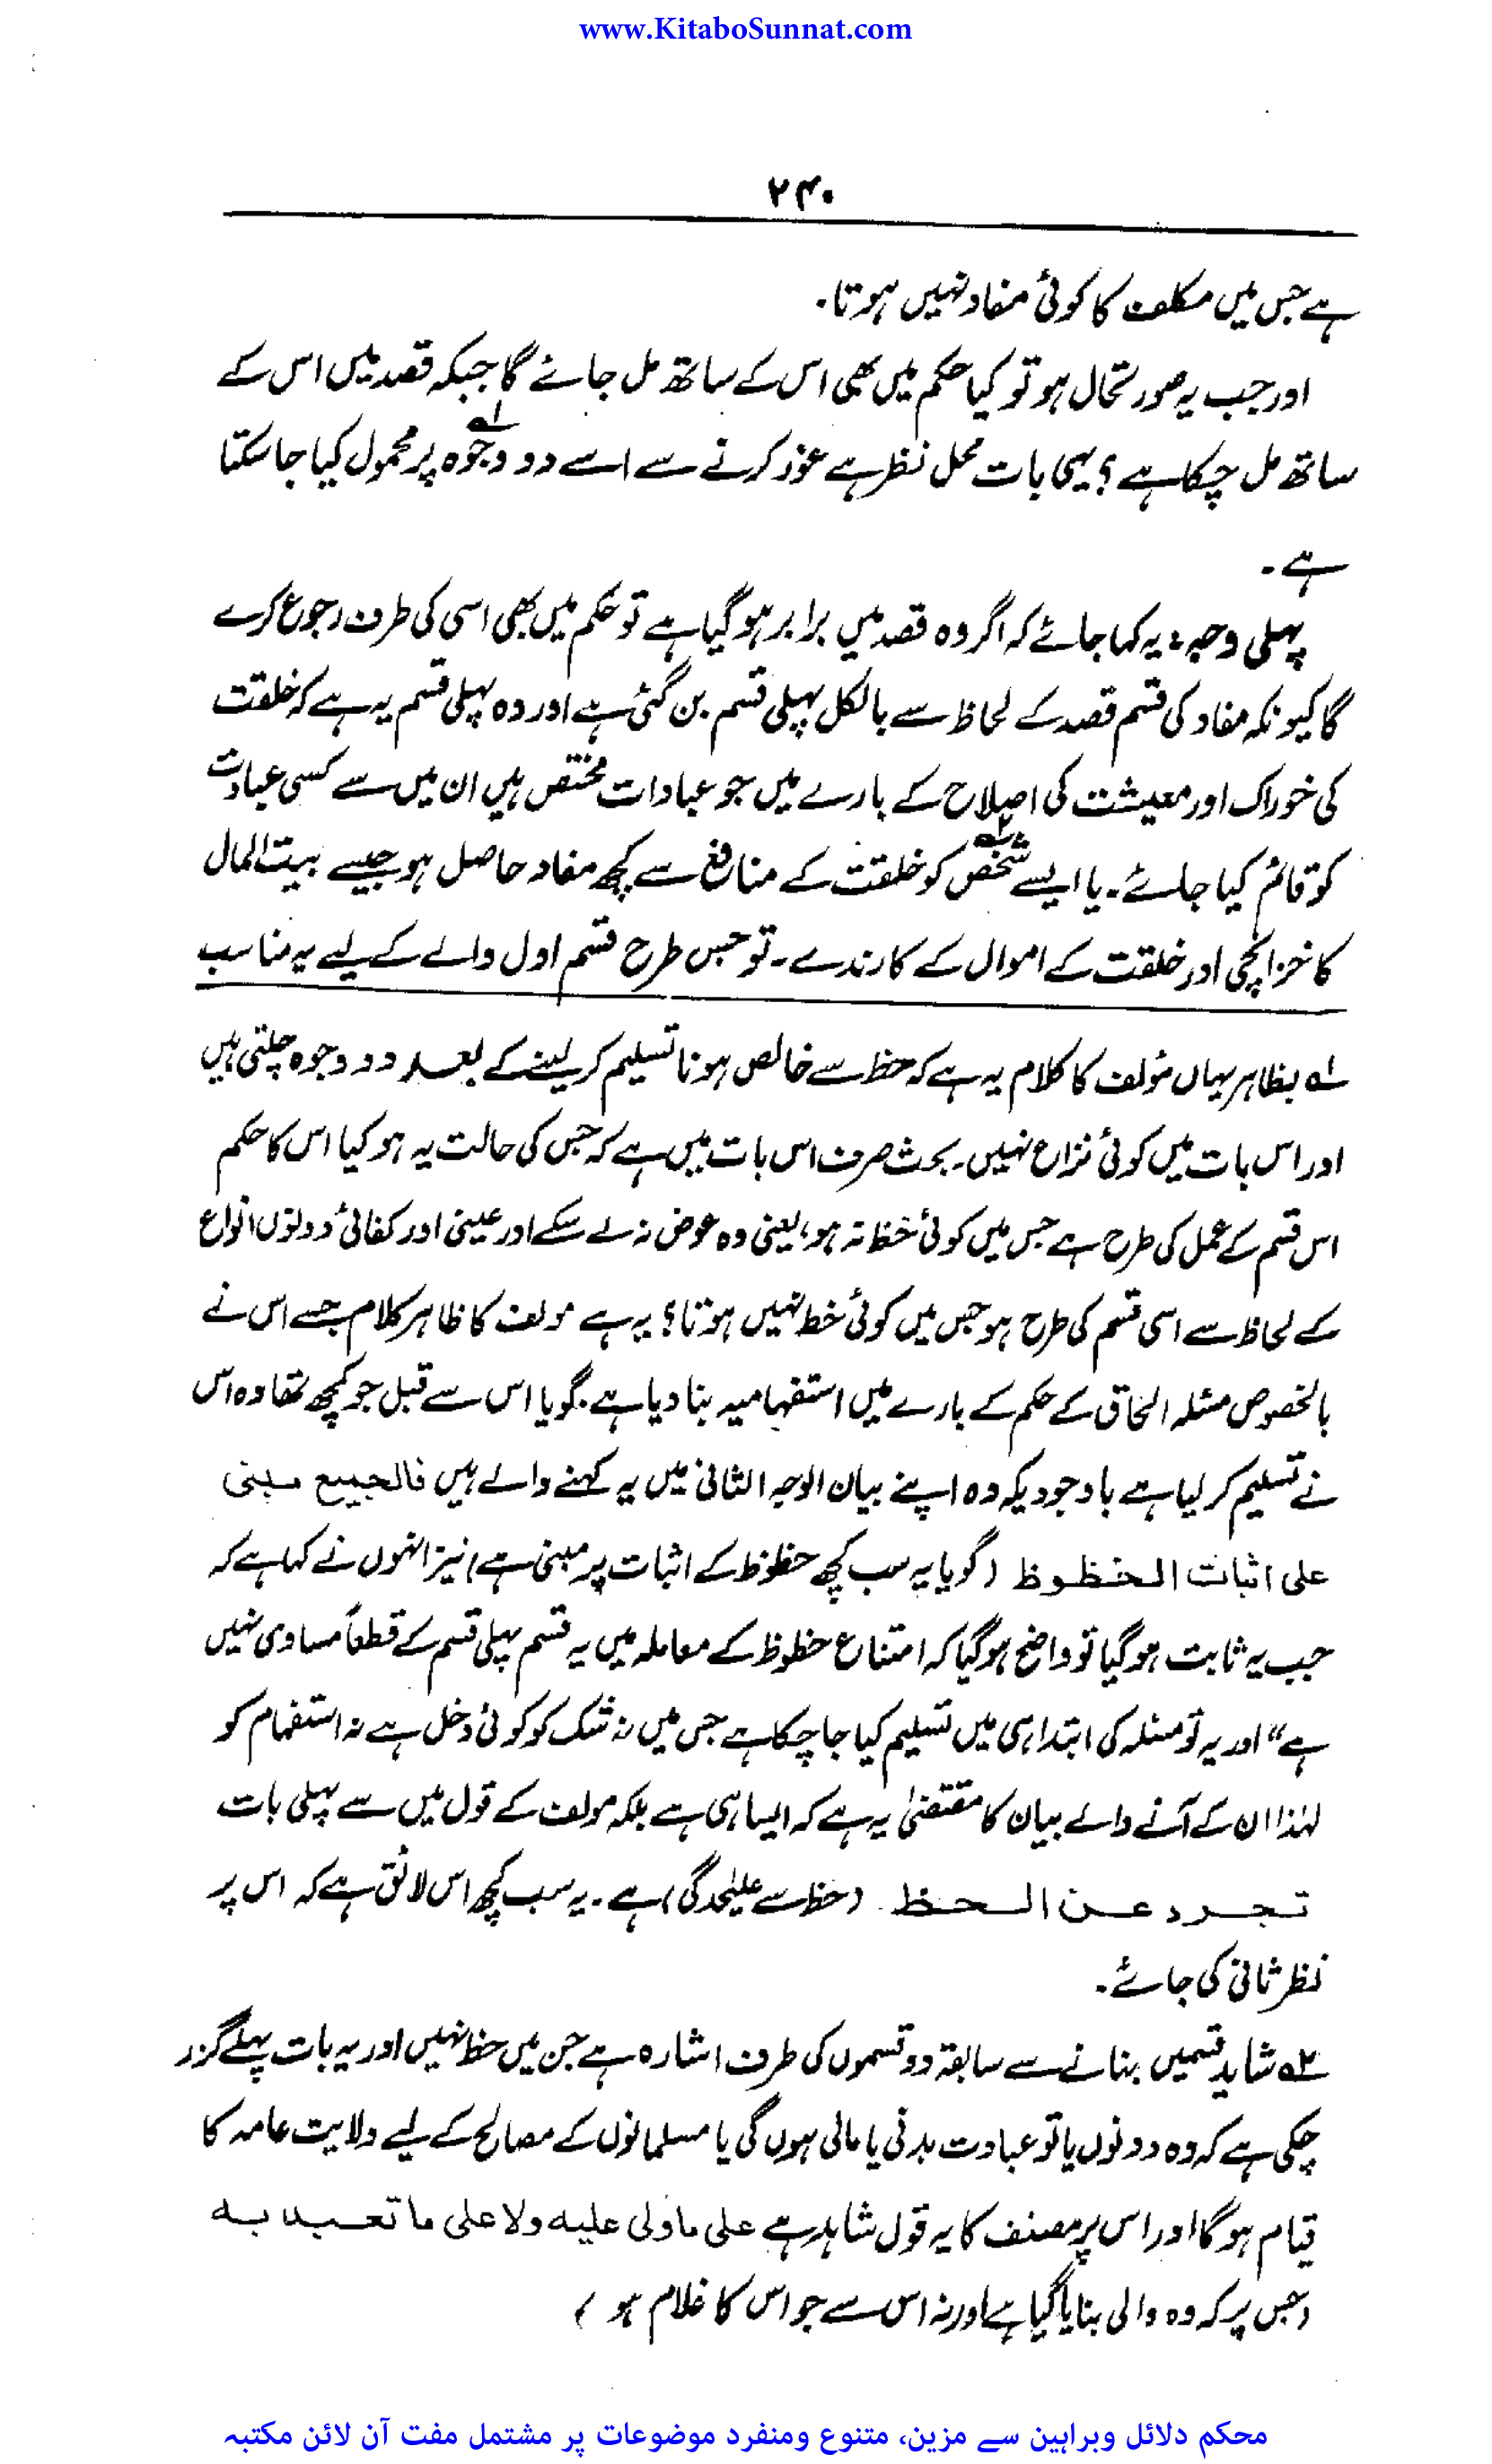 www.KitaboSunnat.com
۲۴۰
ہے جس میں مکلف کا کوئی مفاد نہیں ہوتا۔
اور جب یہ صورتحال ہو تو کیا حکم میں بھی اس کے ساتھ مل جائے گا جبکہ قصد میں اس کے
ساتھ مل چکا ہے ؟ یہی بات محل نظر ہے غور کرنے سے اسے دو وجوہ پر محمول کیا جا سکتا
ہے ۔
پہلی وجہ : یہ کہا جائے کہ اگر وہ قصد میں برابر ہو گیا ہے تو حکم میں بھی اسی کی طرف رجوع کرے
گا کیونکہ مفاد کی قسم قصد کے لحاظ سے بالکل پہلی قسم بن گئی ہے اور وہ پہلی قسم یہ ہے کہ خلقت
کی خوراک اور معیشت کی اصلاح کے بارے میں جو عبادات مختص ہیں ان میں سے کسی عبادت
کو قائم کیا جائے ۔ یا ایسے شخص۲؎ کو خلقت کے منافع سے کچھ مفاد حاصل ہو جیسے بیت المال
کا خزانچی اور خلقت کے اموال کے کارندے ۔ تو جس طرح قسم اول والے کے لیے یہ مناسب
۱؎ بظاہر یہاں مؤلف کا کلام یہ ہے کہ حظ سے خالص ہونا تسلیم کر لینے کے بعد دو وجوہ چلتی ہیں
اور اس بات میں کوئی نزاع نہیں ۔ بحث صرف اس بات میں ہے کہ جس کی حالت یہ ہو کیا اس کا حکم
اس قسم کے عمل کی طرح ہے جس میں کوئی حظ نہ ہو، یعنی وہ عوض نہ لے سکے اور عینی اور کفائی دونوں انواع
کے لحاظ سے اسی قسم کی طرح ہو جس میں کوئی خط نہیں ہوتا ؟ یہ ہے مولف کا ظاہر کلام جسے اس نے
بالخصوص مسئلہ الحاق کے حکم کے بارے میں استفہامیہ بنا دیا ہے ۔ گویا اس سے قبل جو کچھ تھا وہ اس
نے تسلیم کر لیا ہے باوجودیکہ وہ اپنے بیان الوجہ الثانی میں یہ کہنے والے ہیں فالجمیع مبنی
علی اثبات الحظوظ (گویا یہ سب کچھ حظوظ کے اثبات پر مبنی ہے) نیز انہوں نے کہا ہے کہ
جب یہ ثابت ہو گیا تو واضح ہو گیا کہ امتناع حظوظ کے معاملہ میں یہ قسم پہلی قسم کے قطعاً مساوی نہیں
ہے“ اور یہ تو مسئلہ کی ابتدا ہی میں تسلیم کیا جا چکا ہے جس میں نہ شک کو کوئی دخل ہے نہ استفہام کو
لہٰذا ان کے آنے والے بیان کا مقتضیٰ یہ ہے کہ ایسا ہی ہے بلکہ مولف کے قول میں سے پہلی بات
تجرد عن الحظ (حظ سے علیٰحدگی) ہے ۔ یہ سب کچھ اس لائق ہے کہ اس پر
نظر ثانی کی جائے ۔
۲؎ شاید قسمیں بنانے سے سابقہ دو قسموں کی طرف اشارہ ہے جن میں حظ نہیں اور یہ بات پہلے گزر
چکی ہے کہ وہ دونوں یا تو عبادت بدنی یا مالی ہوں گی یا مسلمانوں کے مصالح کے لیے ولایت عامہ کا
قیام ہو گا اور اس پر مصنف کا یہ قول شاہد ہے علی ماولی علیه ولا علی ما تعبد به
(جس پر کہ وہ والی بنایا گیا ہے اور نہ اس سے جو اس کا غلام ہو )
محکم دلائل وبراہین سے مزین، متنوع ومنفرد موضوعات پر مشتمل مفت آن لائن مکتبہ